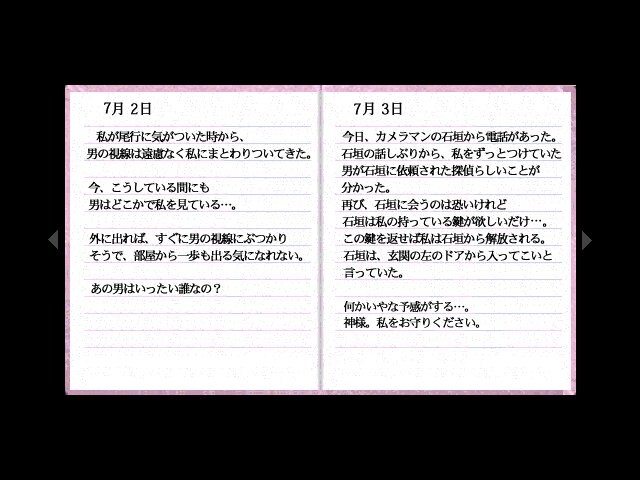 7月 2日
私が尾行に気がついた時から、
男の視線は遠慮なく私にまとわりついてきた。
今、こうしている間にも
男はどこかで私を見ている…。
外に出れば、すぐに男の視線にぶつかり
そうで、部屋から一歩も出る気になれない。
あの男はいったい誰なの？
7月 3日
今日、カメラマンの石垣から電話があった。
石垣の話しぶりから、私をずっとつけていた
男が石垣に依頼された探偵らしいことが
分かった。
再び、石垣に会うのは恐いけれど
石垣は私の持っている鍵が欲しいだけ…。
この鍵を返せば私は石垣から解放される。
石垣は、玄関の左のドアから入ってこいと
言っていた。
何かいやな予感がする…。
神様。私をお守りください。